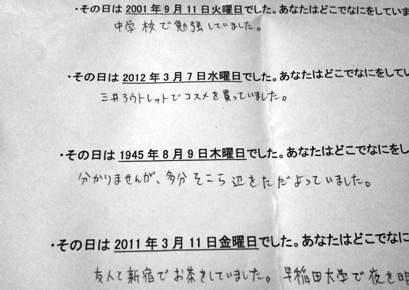 ・その日は 2001 年 9 月 11 日火曜日でした。あなたはどこでなにをしていま
中学校で勉強していました。
・その日は 2012 年 3 月 7 日水曜日でした。あなたはどこでなにをしてい
三井アウトレットでコスメを買っていました。
・その日は 1945 年 8 月 9 日木曜日でした。あなたはどこでなにをし
分かりませんが、多分そこら辺をただよっていました。
・その日は 2011 年 3 月 11 日金曜日でした。あなたはどこでなに
友人と新宿でお茶をしていました。早稲田大学で夜を明